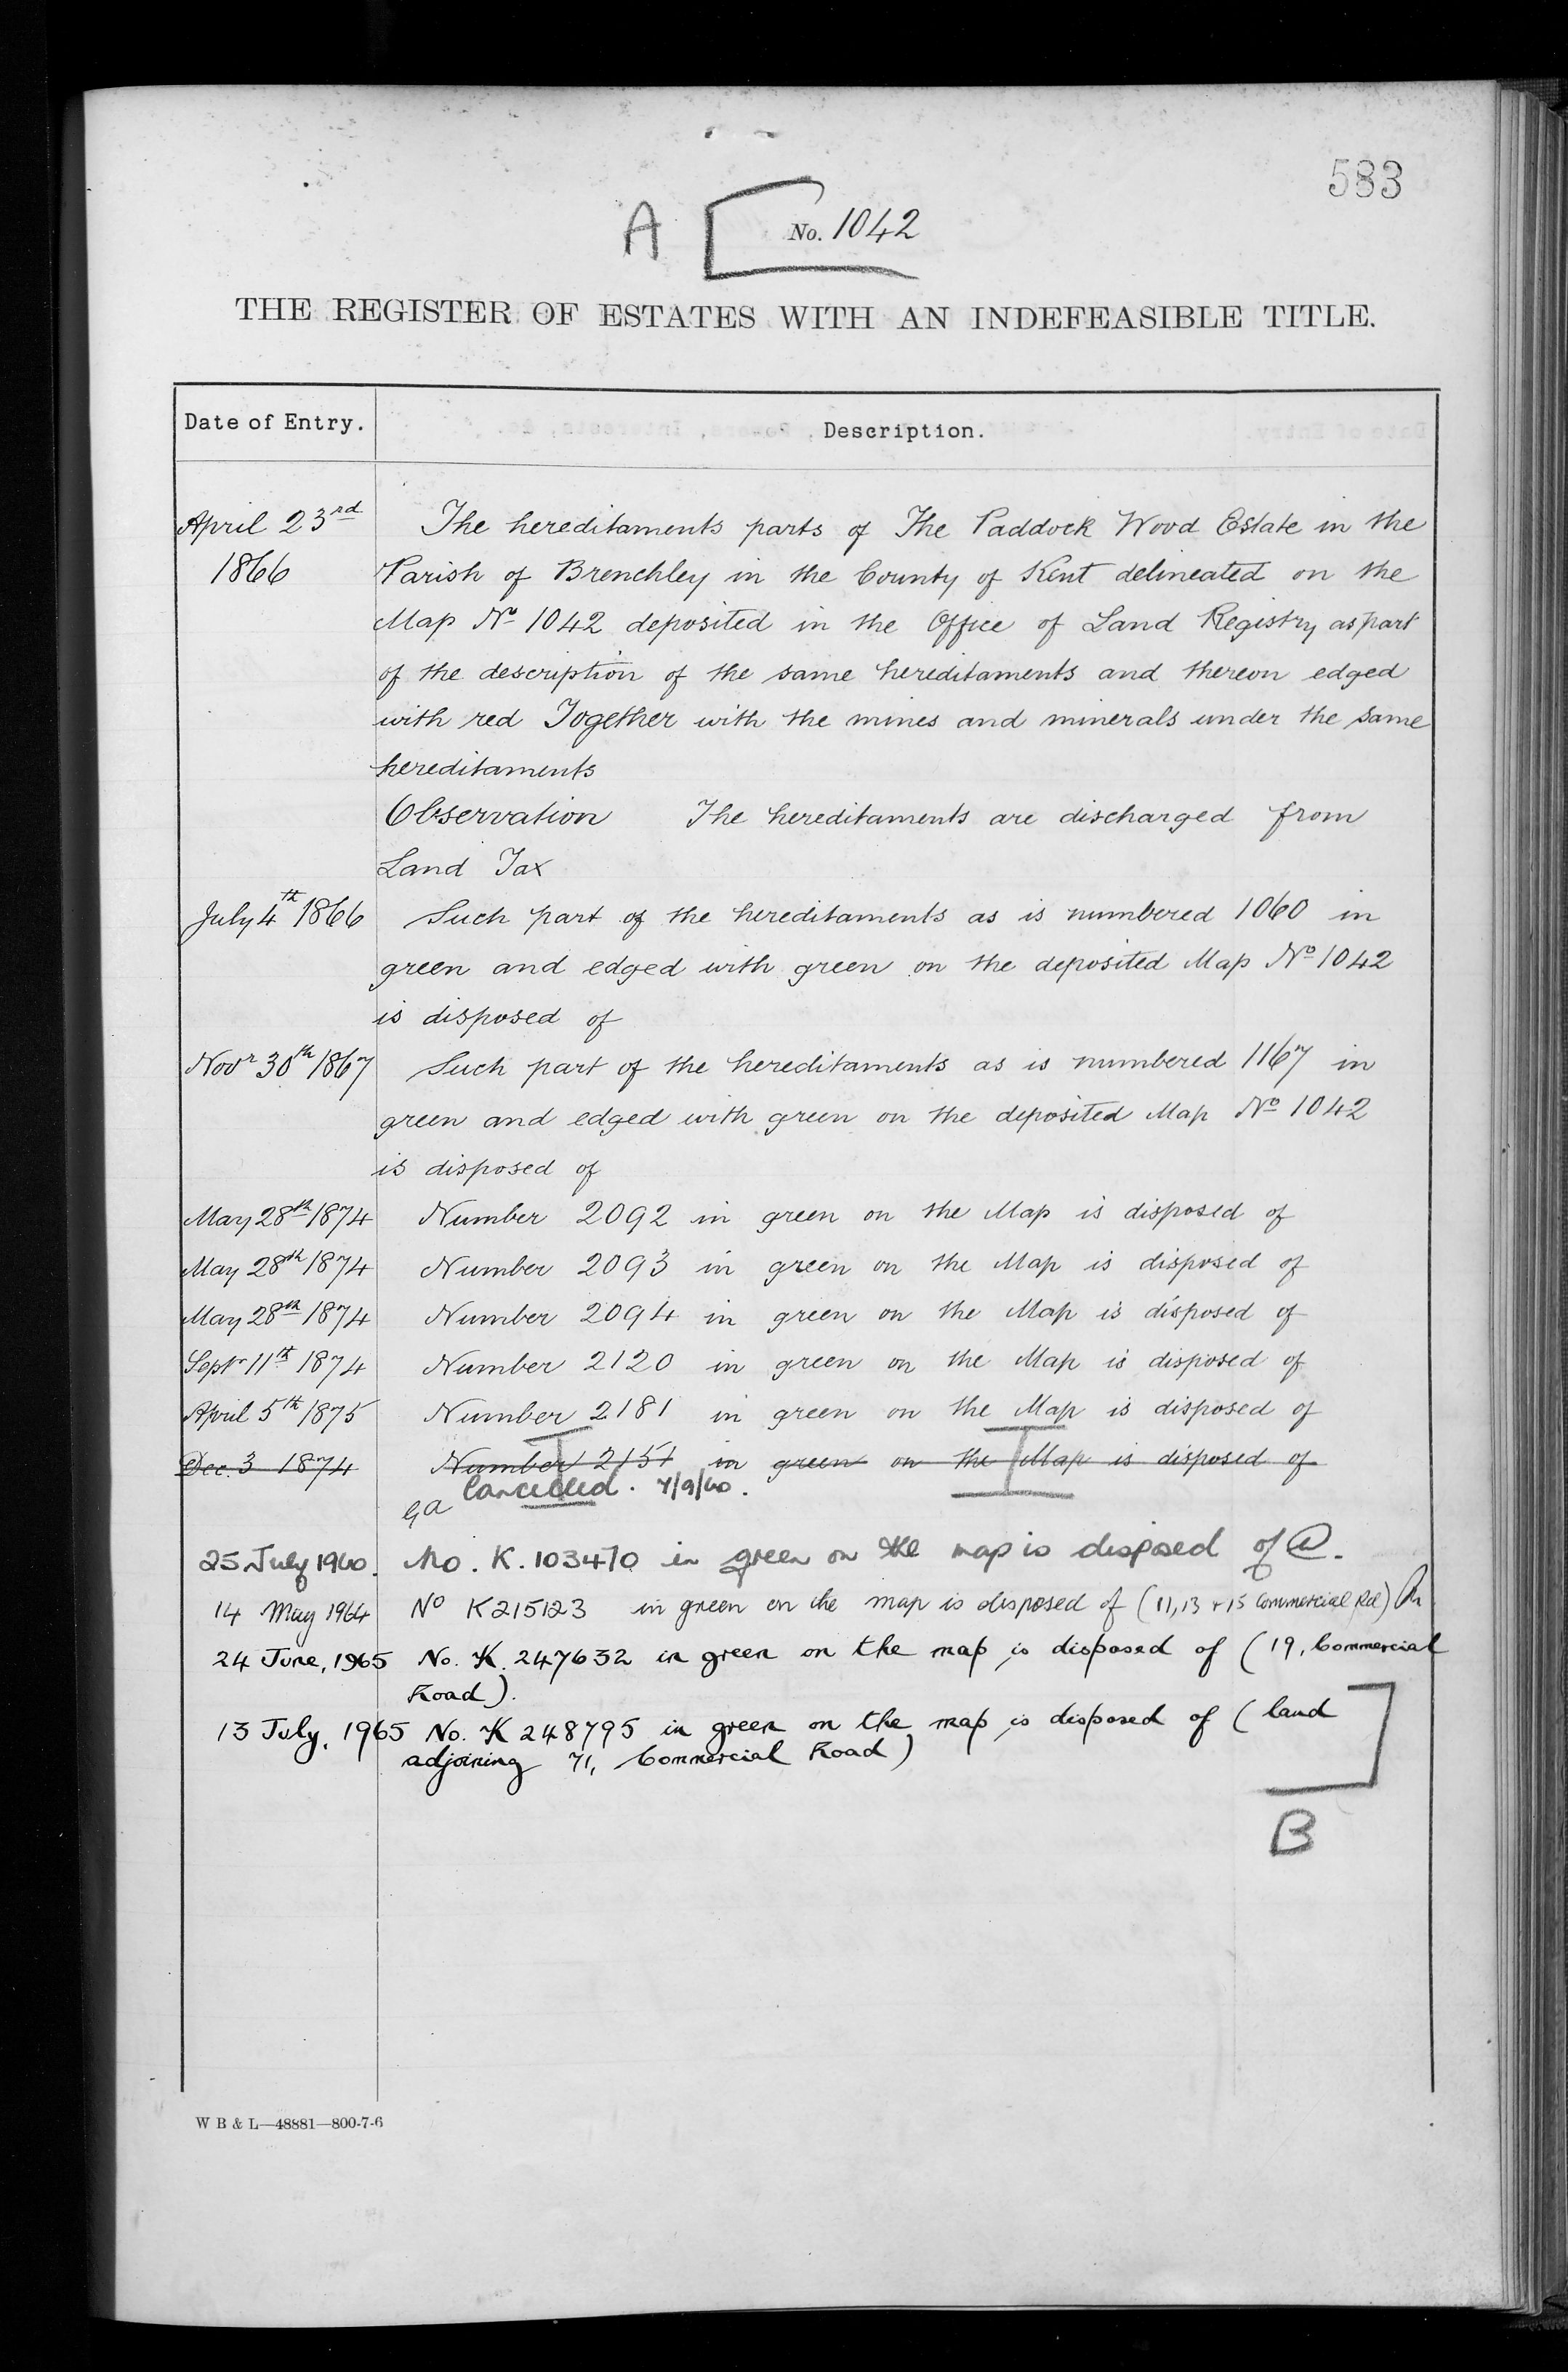 583
A
No. 1042
THE REGISTER OF ESTATES WITH AN INDEFEASIBLE TITLE.
Date of Entry. Description.
April 23rd The hereditaments parts of The Paddock Wood Estate in the
1866 Parish of Brenchley in the County of Kent delineated on the
Map No 1042 deposited in the Office of Land Registry as part
of the description of the same hereditaments and thereon edged
with red Together with the mines and minerals under the same
hereditaments
Observation The hereditaments are discharged from
Land Tax
July 4th 1866 Such part of the hereditaments as is numbered 1060 in
green and edged with green on the deposited Map No 1042
is disposed of
Novr 30th 1867 Such part of the hereditaments as is numbered 1167 in
green and edged with green on the deposited Map No 1042
is disposed of
May 28th 1874 Number 2092 in green on the Map is disposed of
May 28th 1874 Number 2093 in green on the Map is disposed of
May 28th 1874 Number 2094 in green on the Map is disposed of
Septr 11th 1874 Number 2120 in green on the Map is disposed of
April 5th 1875 Number 2181 in green on the Map is disposed of
Dec. 3 1874 Number 2151 in green on the Map is disposed of
Cancelled. 7/9/60.
25 July 1960. No. K. 103470 in green on the map is disposed of
14 May 1964 No K215123 in green on the map is disposed of (11, 13 + 15 Commercial Rd)
24 June, 1965 No. K. 247632 in green on the map is disposed of (19, Commercial
Road).
13 July, 1965 No. K 248795 in green on the map is disposed of (land
adjoining 71, Commercial Road)
B
W B & L—48881—800-7-6